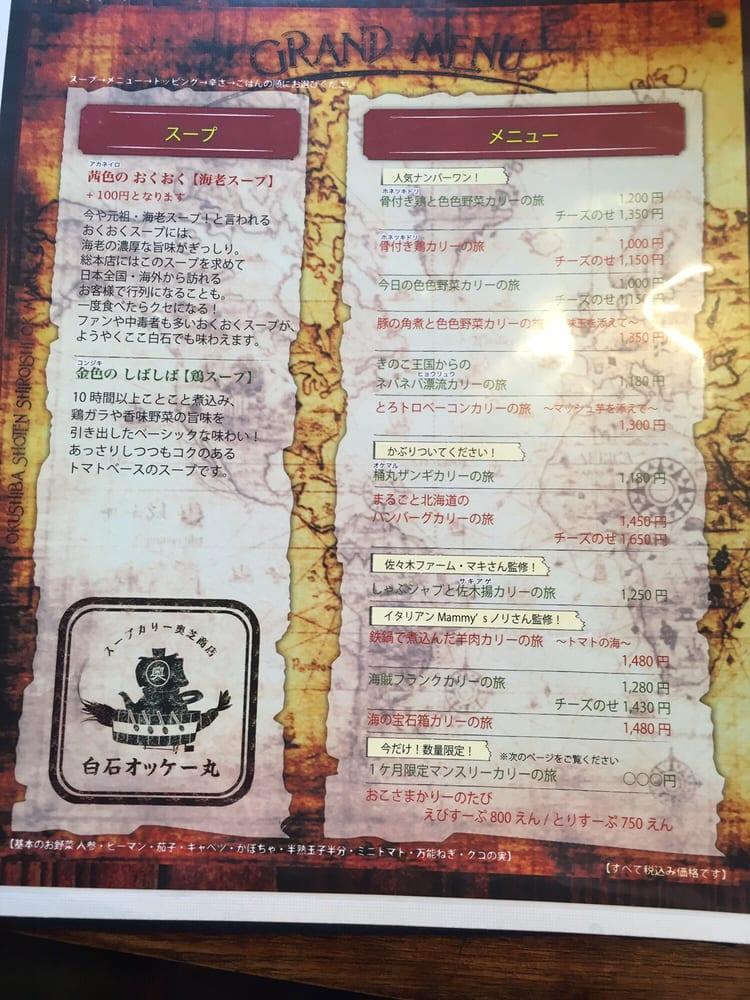 GRAND MENU
スープ→メニュー→トッピング→辛さ→ごはんの順にお選びください
スープ
アカネイロ
茜色の おくおく【海老スープ】
+100円となります
今や元祖・海老スープ！と言われる
おくおくスープには、
海老の濃厚な旨味がぎっしり。
総本店にはこのスープを求めて
日本全国・海外から訪れる
お客様で行列になることも。
一度食べたらクセになる！
ファンや中毒者も多いおくおくスープが、
ようやくここ白石でも味わえます。
コンジキ
金色の しばしば【鶏スープ】
10時間以上ことこと煮込み、
鶏ガラや香味野菜の旨味を
引き出したベーシックな味わい！
あっさりしつつもコクのある
トマトベースのスープです。
OKUSHIBA SHOTEN SHIROISHI
スープカリー奥芝商店
奥
白石オッケー丸
メニュー
人気ナンバーワン！
ホネツキドリ
骨付き鶏と色色野菜カリーの旅 1,200円
チーズのせ 1,350円
ホネツキドリ
骨付き鶏カリーの旅 1,000円
チーズのせ 1,150円
今日の色色野菜カリーの旅 1,000円
チーズのせ 1,150円
豚の角煮と色色野菜カリーの旅 味玉を添えて〜
1,350円
きのこ王国からの
ヒョウリュウ
ネバネバ漂流カリーの旅 1,180円
とろトロベーコンカリーの旅 〜マッシュ芋を添えて〜
1,300円
かぶりついてください！
オケマル
桶丸ザンギカリーの旅 1,180円
まるごと北海道の
ハンバーグカリーの旅 1,450円
チーズのせ 1,650円
佐々木ファーム・マキさん監修！
サキアゲ
しゃぶシャブと佐木揚カリーの旅 1,250円
イタリアン Mammy'sノリさん監修！
鉄鍋で煮込んだ羊肉カリーの旅 〜トマトの海〜
1,480円
海賊フランクカリーの旅 1,280円
チーズのせ 1,430円
海の宝石箱カリーの旅 1,480円
今だけ！数量限定！ ※次のページをご覧ください
1ケ月限定マンスリーカリーの旅 〇〇〇円
おこさまかりーのたび
えびすーぷ 800えん / とりすーぷ 750えん
【基本のお野菜 人参・ピーマン・茄子・キャベツ・かぼちゃ・半熟玉子半分・ミニトマト・万能ねぎ・クコの実】
【すべて税込み価格です】